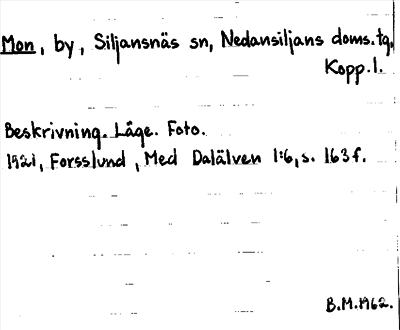 Mon, by, Siljansnäs sn, Nedansiljans doms.tg,
Kopp.l.
Beskrivning. Läge. Foto.
1921, Forsslund, Med Dalälven 1:6, s. 163 f.
B.M.1962.